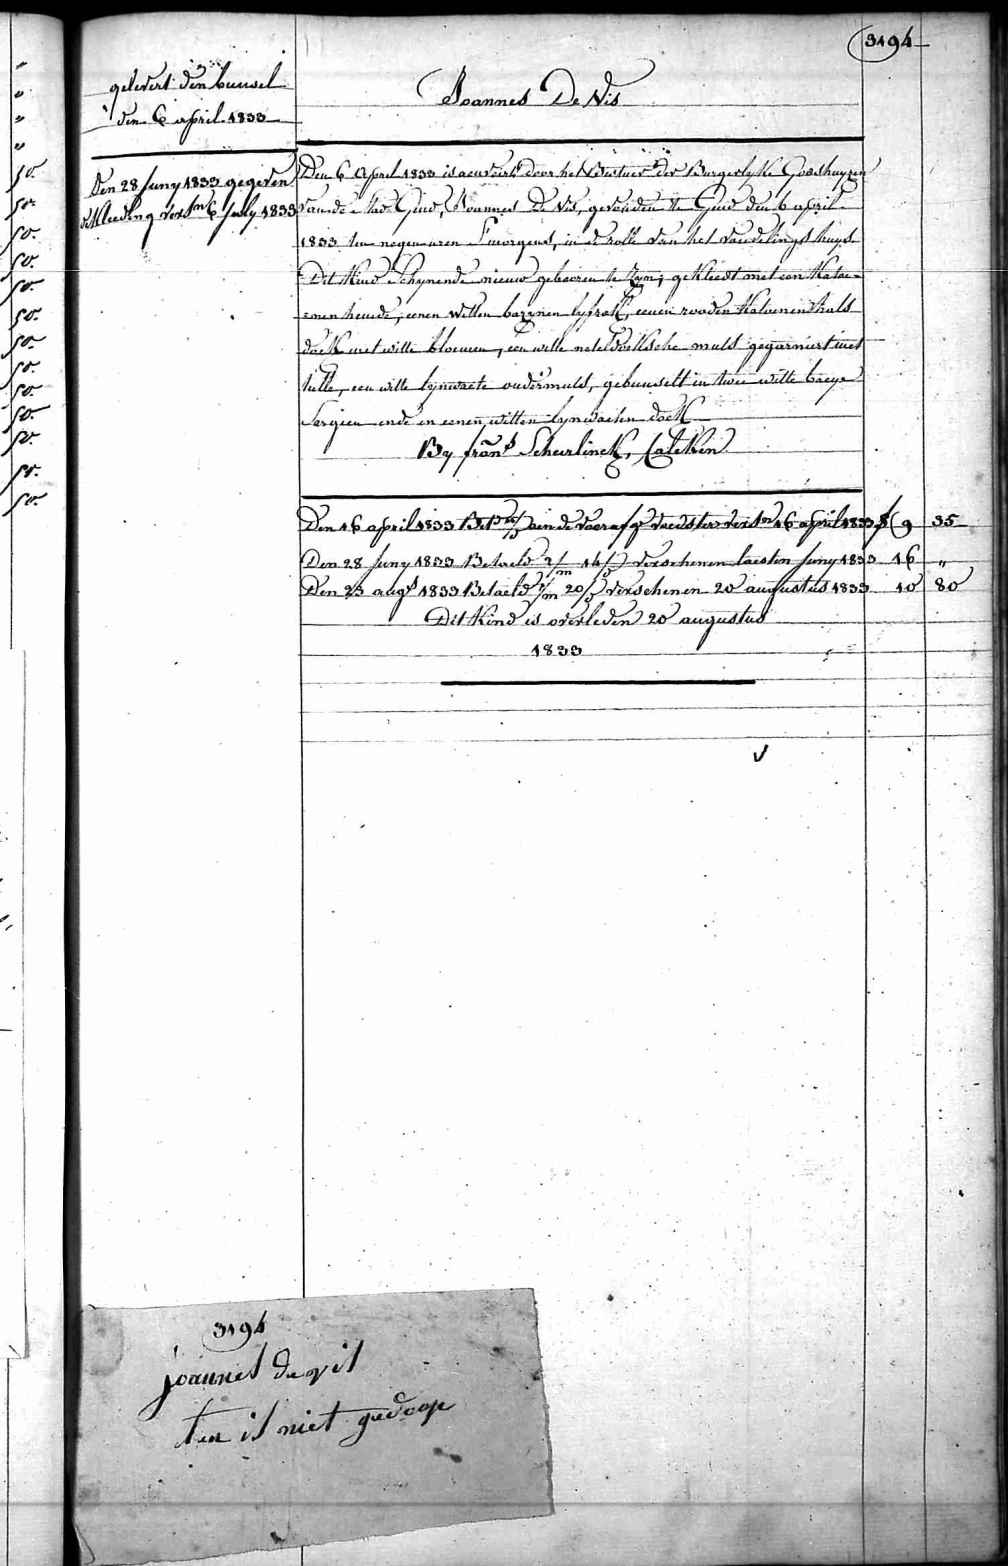 3194
Joannes De Vis
gelevert den bunsel
den 6 april 1833
Den 28 Juny 1833 gegeven
de kleeding versn 6 July 1833
Den 6 April 1833 is aenveird door het Bestuer der Burgerlyke Godshuyzen
van de stad Gend, Joannes De Vis, gevonden te Gend den 6 april
1833 ten negen uren S'morgens, in de rolle van het vondelingshuys
Dit Kind schynende nieuw gebooren te zyn; gekleedt met een Katoe=
enen hemde, eenen witten bazynen lyfrok, eenen rooden Katoenen hals
doek met witte bloemen, een witte neteldoeksche muts gegarniert met
tulle, een witte lynwaete ondermuts, gebunselt in twee witte baeye
Sargien ende in eenen witten lynwaeten doek
By frans Scheerlinck, Calcken
Den 16 april 1833 aen de voedster versn 16 april 1833 f 9 35
Den 28 Juny 1833 Betaeld 2/m 14/d verschenen laesten Juny 1833 16 "
Den 23 augs 1833 Betaeld 1/m 20/d verschenen 20 augustus 1833 10 80
Dit Kind is overleden 20 augustus
1833
3194
joannes de vis
ten is niet gedoop
so.
so.
so.
so.
so.
so.
so.
so.
so.
so.
so.
so.
so.